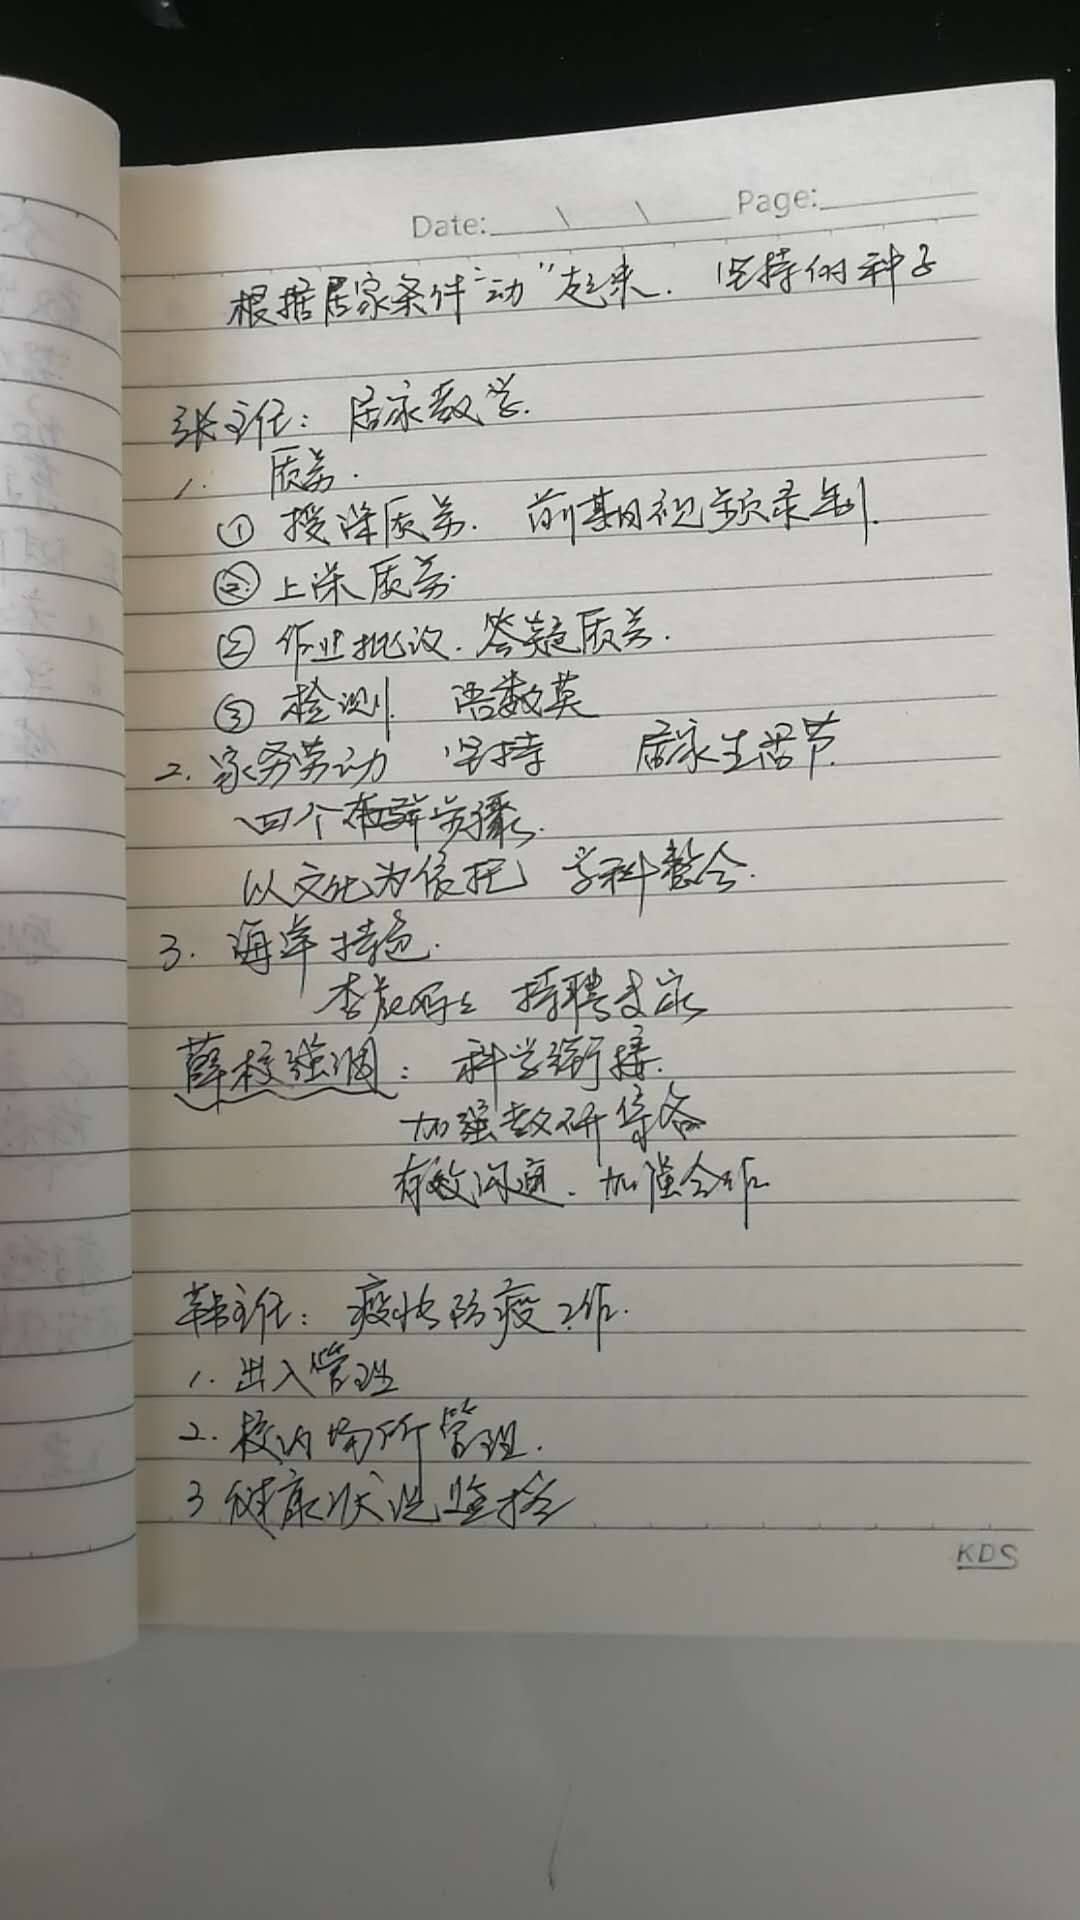 Date: \ \ Page:
根据居家条件"动"起来. 坚持的种子
张主任: 居家教学.
1. 质量.
① 授课质量. 前期视频录制.
② 上课质量.
② 作业批改. 答疑质量.
③ 检测. 语数英
2. 家务劳动 坚持 居家生活节.
四个
以文化为依托 学科整合.
3. 海洋特色.
薛校强调: 科学衔接.
加强教研
有效沟通. 加强合作
韩主任: 疫情防疫工作.
1. 出入管理
2. 校内场所管理.
3 健康状况监控
KDS